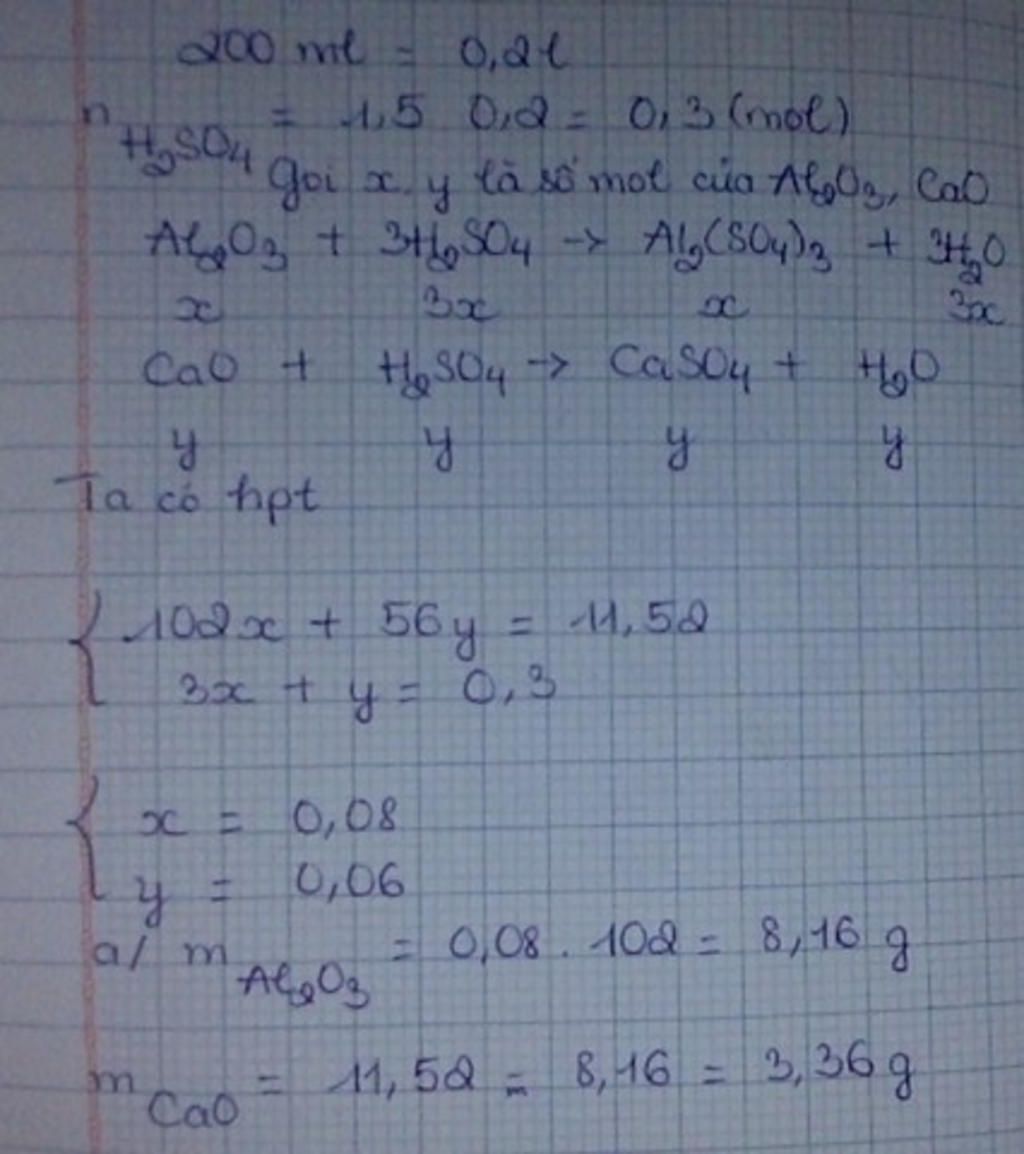 200 ml = 0,2l
n H₂SO₄ = 1,5 0,2 = 0,3 (mol)
Gọi x, y là số mol của Al₂O₃, CaO
Al₂O₃ + 3H₂SO₄ → Al₂(SO₄)₃ + 3H₂O
x 3x x 3x
CaO + H₂SO₄ → CaSO₄ + H₂O
y y y y
Ta có hpt
{ 102x + 56y = 11,52
3x + y = 0,3
{ x = 0,08
y = 0,06
a/ m Al₂O₃ = 0,08 . 102 = 8,16 g
m CaO = 11,52 - 8,16 = 3,36 g